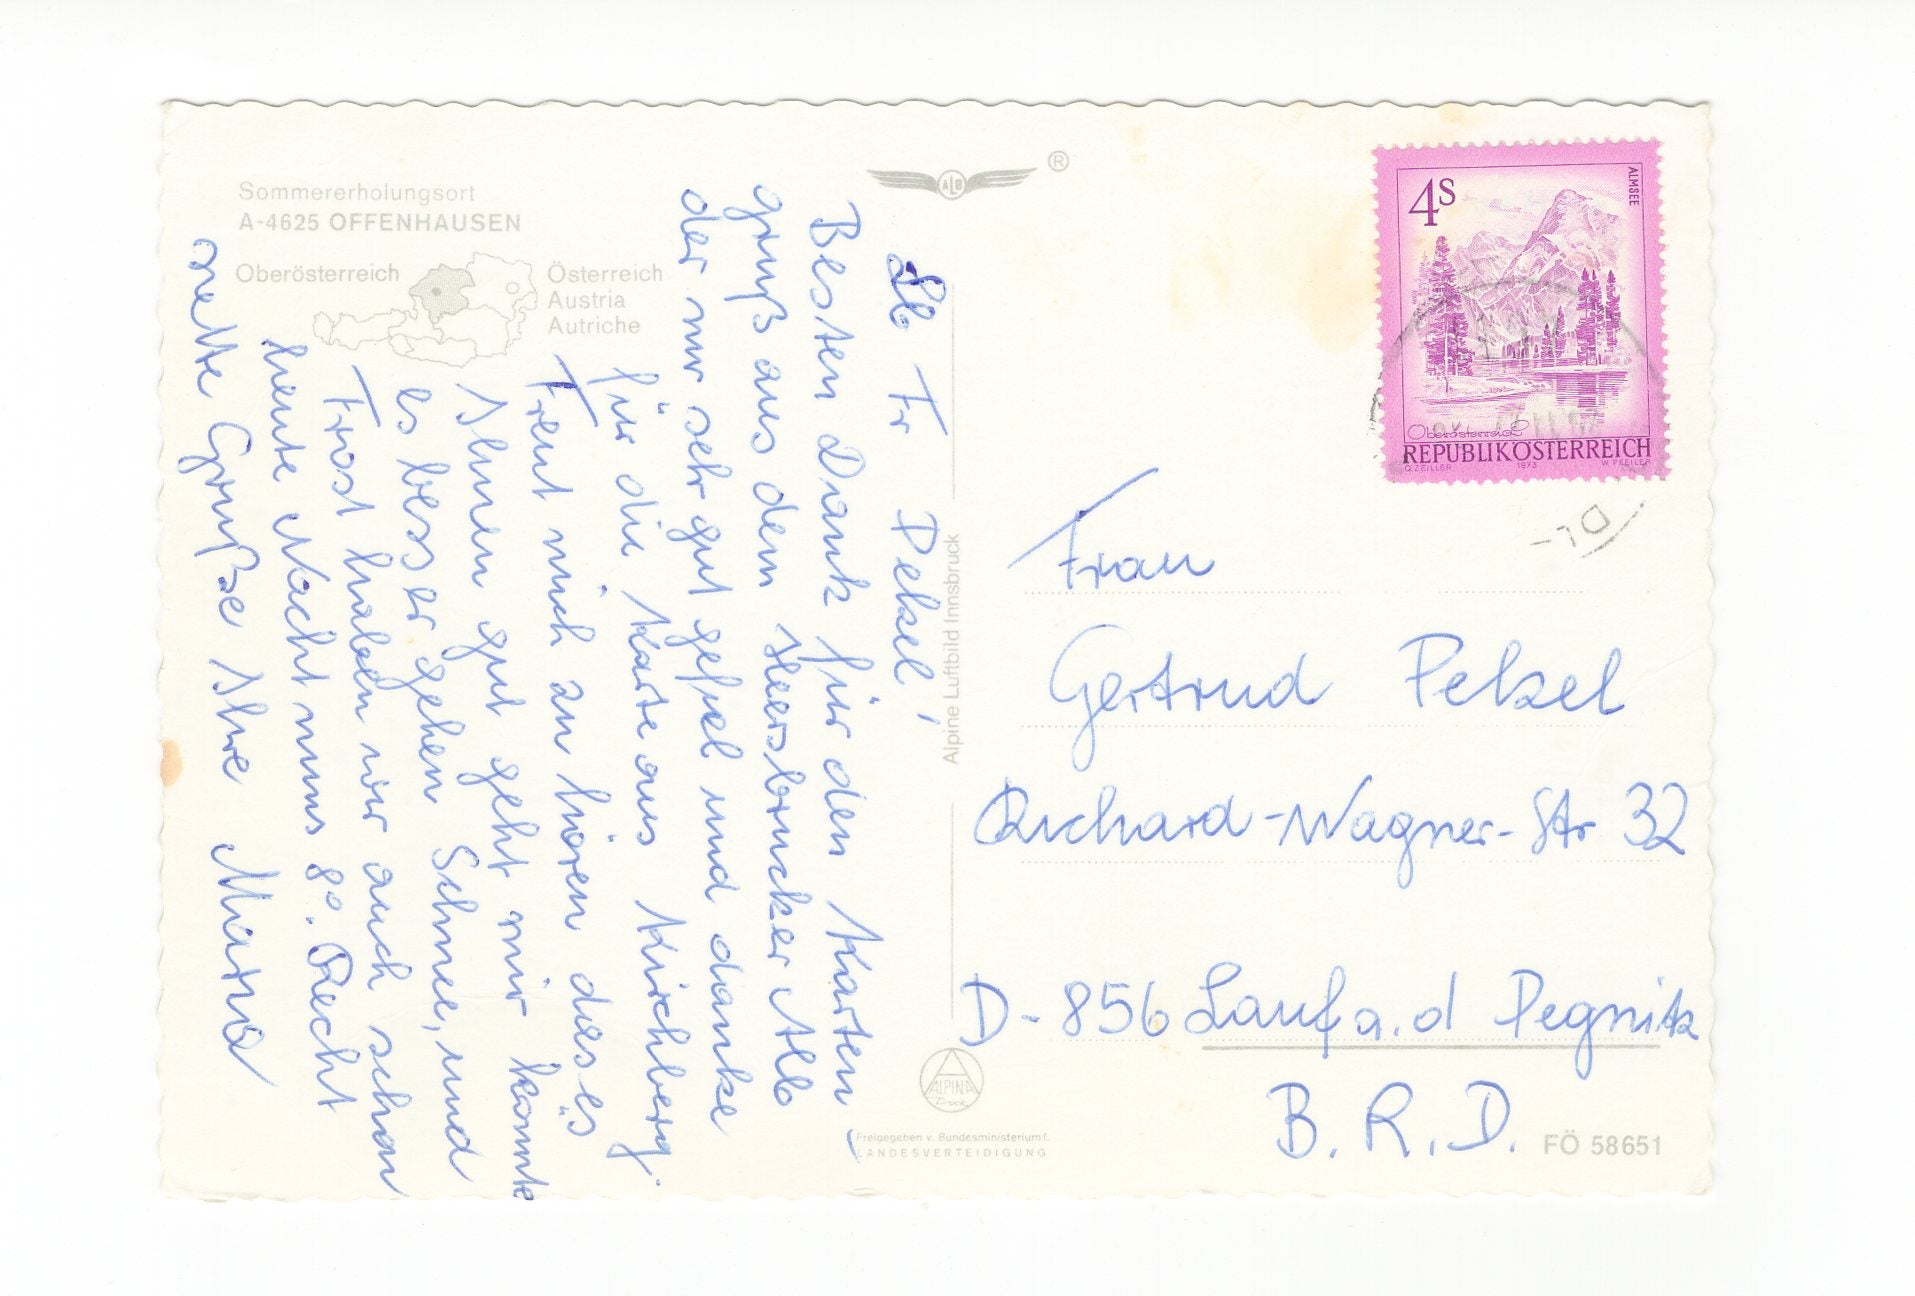 Sommererholungsort
A-4625 OFFENHAUSEN
Oberösterreich
Österreich
Austria
Autriche
ALB ®
Lb Fr Pelzel!
Besten Dank für den Karten
gruß aus dem Hersbrucker Alb
der mir sehr gut gefiel und danke
für die Karte aus Kirchberg.
Freut mich zu hören das es
Ihnen gut geht mir könnte
es besser gehen Schnee, und
Frost haben wir auch schon
heute Nacht mins 8°. Recht
nette Grüße Ihre Maria
Alpine Luftbild Innsbruck
ALPINA
Druck
Freigegeben v. Bundesministerium f.
LANDESVERTEIDIGUNG
4S
ALMSEE
Oberösterreich
REPUBLIK ÖSTERREICH
O. ZEILLER 1973 W. PFEILER
Frau
Gertrud Pelzel
Richard-Wagner-Str 32
D-856 Lauf a.d Pegnitz
B.R.D.
FÖ 58651